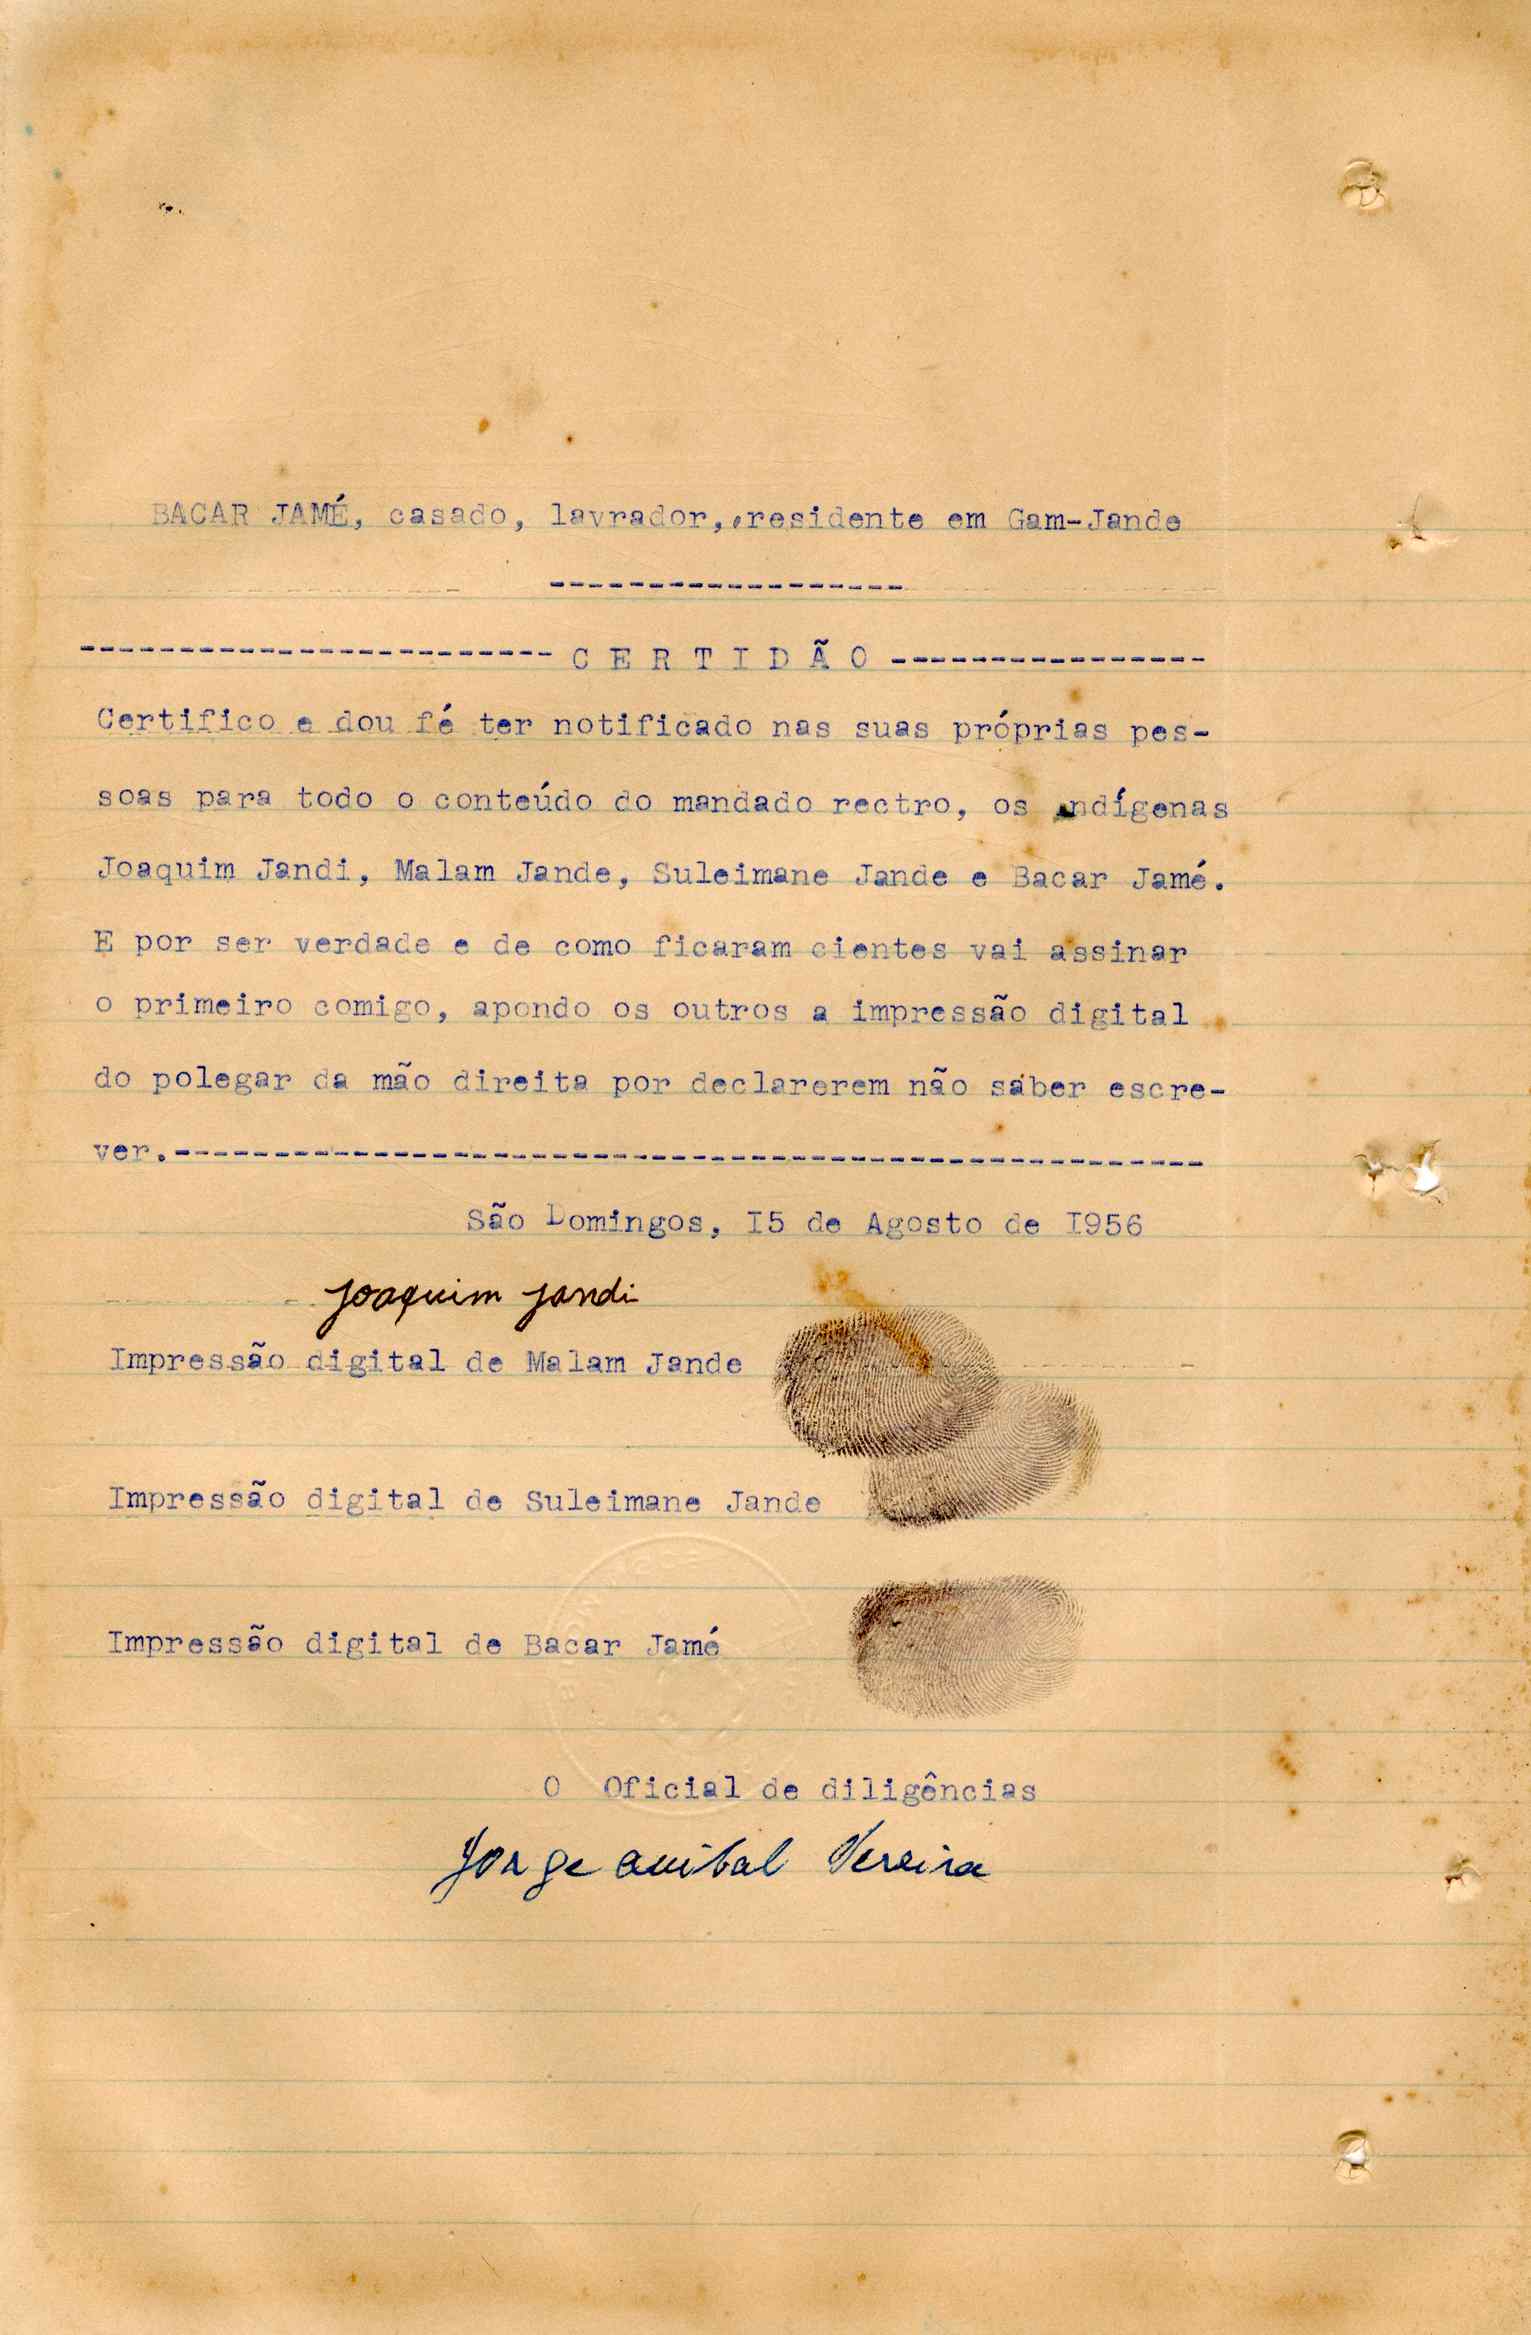 BACAR JAMÉ, casado, lavrador,,residente em Gam-Jande
------------------
------------------------ C E R T I D Ã O ----------------
Certifico e dou fé ter notificado nas suas próprias pes-
soas para todo o conteúdo do mandado rectro, os indígenas
Joaquim Jandi, Malam Jande, Suleimane Jande e Bacar Jamé.
E por ser verdade e de como ficaram cientes vai assinar
o primeiro comigo, apondo os outros a impressão digital
do polegar da mão direita por declarerem não saber escre-
ver.----------------------------------------------------
São Domingos, I5 de Agosto de I956
Joaquim Jandi
Impressão digital de Malam Jande
Impressão digital de Suleimane Jande
Impressão digital de Bacar Jamé
O Oficial de diligências
Jorge anibal Pereira